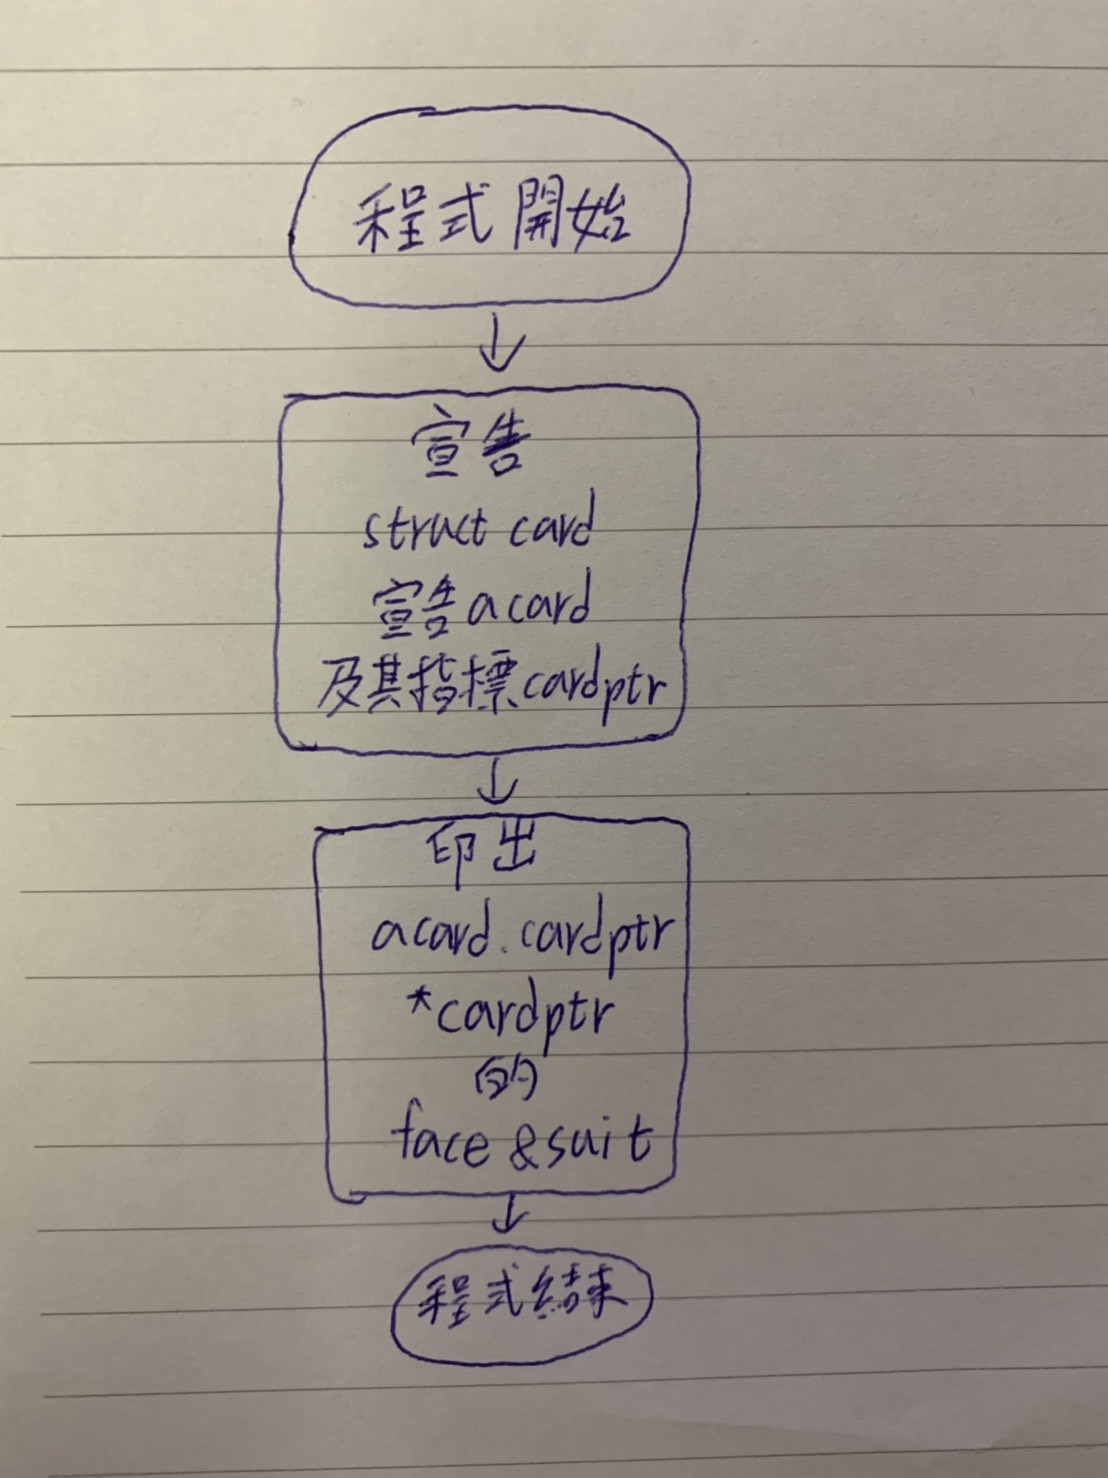 程式開始
宣告
struct card
宣告acard
及其指標cardptr
印出
acard.cardptr
*cardptr
的
face &suit
程式結束